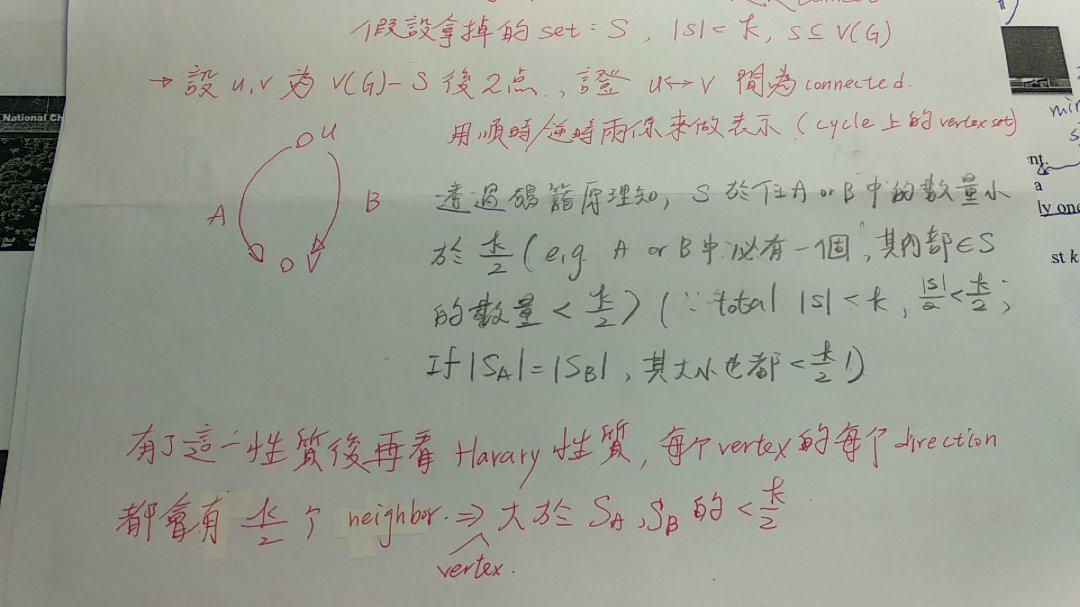 假設拿掉的 set : S , |S| < k, S ⊆ V(G)
→ 設 u, v 為 V(G)-S 後2点, 證 u↔v 間為 connected.
用順時/逆時兩條來做表示 (cycle 上的 vertex set)
National Ch
u
A
B
v
透過鴿籠原理知, S 於任A or B 中的數量小
於 k/2 (e.g A or B中必有一個, 其內部∈S
的數量 < k/2) (∵ total |S| < k, |S|/2 < k/2 ;
If |SA| = |SB| , 其大小也都 < k/2 !)
有了這一性質後再看 Harary 性質, 每个 vertex 的每个 direction
都會有 k/2 个 neighbor. ⇒ 大於 SA, SB 的 < k/2
vertex.
nt.
a
ly one
st k